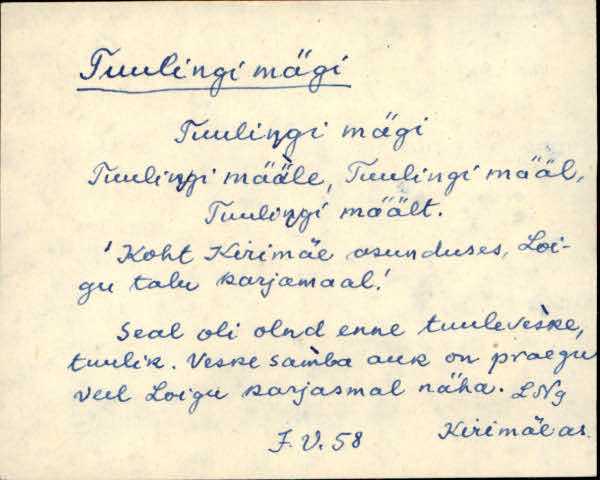 Tuulingi mägi
Tuuliŋgi mägi
Tuuliŋgi mäàle, Tuulingi määl,
Tuuliŋgi mäält.
'Koht Kirimäe asunduses, Loi-
gu talu karjamaal.'
Seal oli olnd enne tuuleves̀ke,
tuulik. Veske sam̀ba auk on praegu
veel Loigu karjasmal näha. LNg
J. V. 58 Kirimäe as.